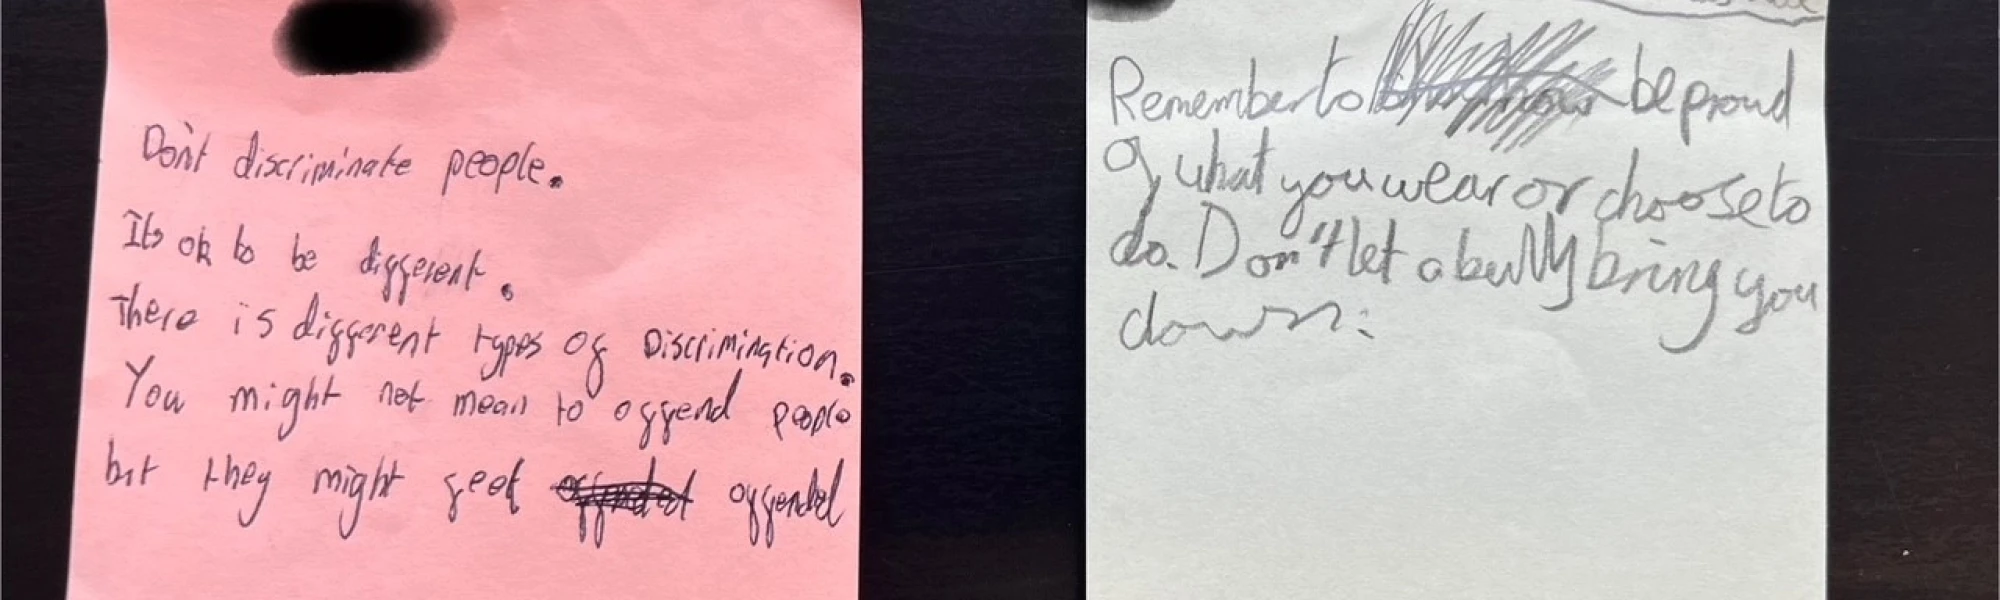 Don't discriminate people.
Its ok to be different.
There is different types of Discrimination.
You might not mean to offend people
but they might feel offended
Remember to be proud
of what you wear or choose to
do. Don't let a bully bring you
down.